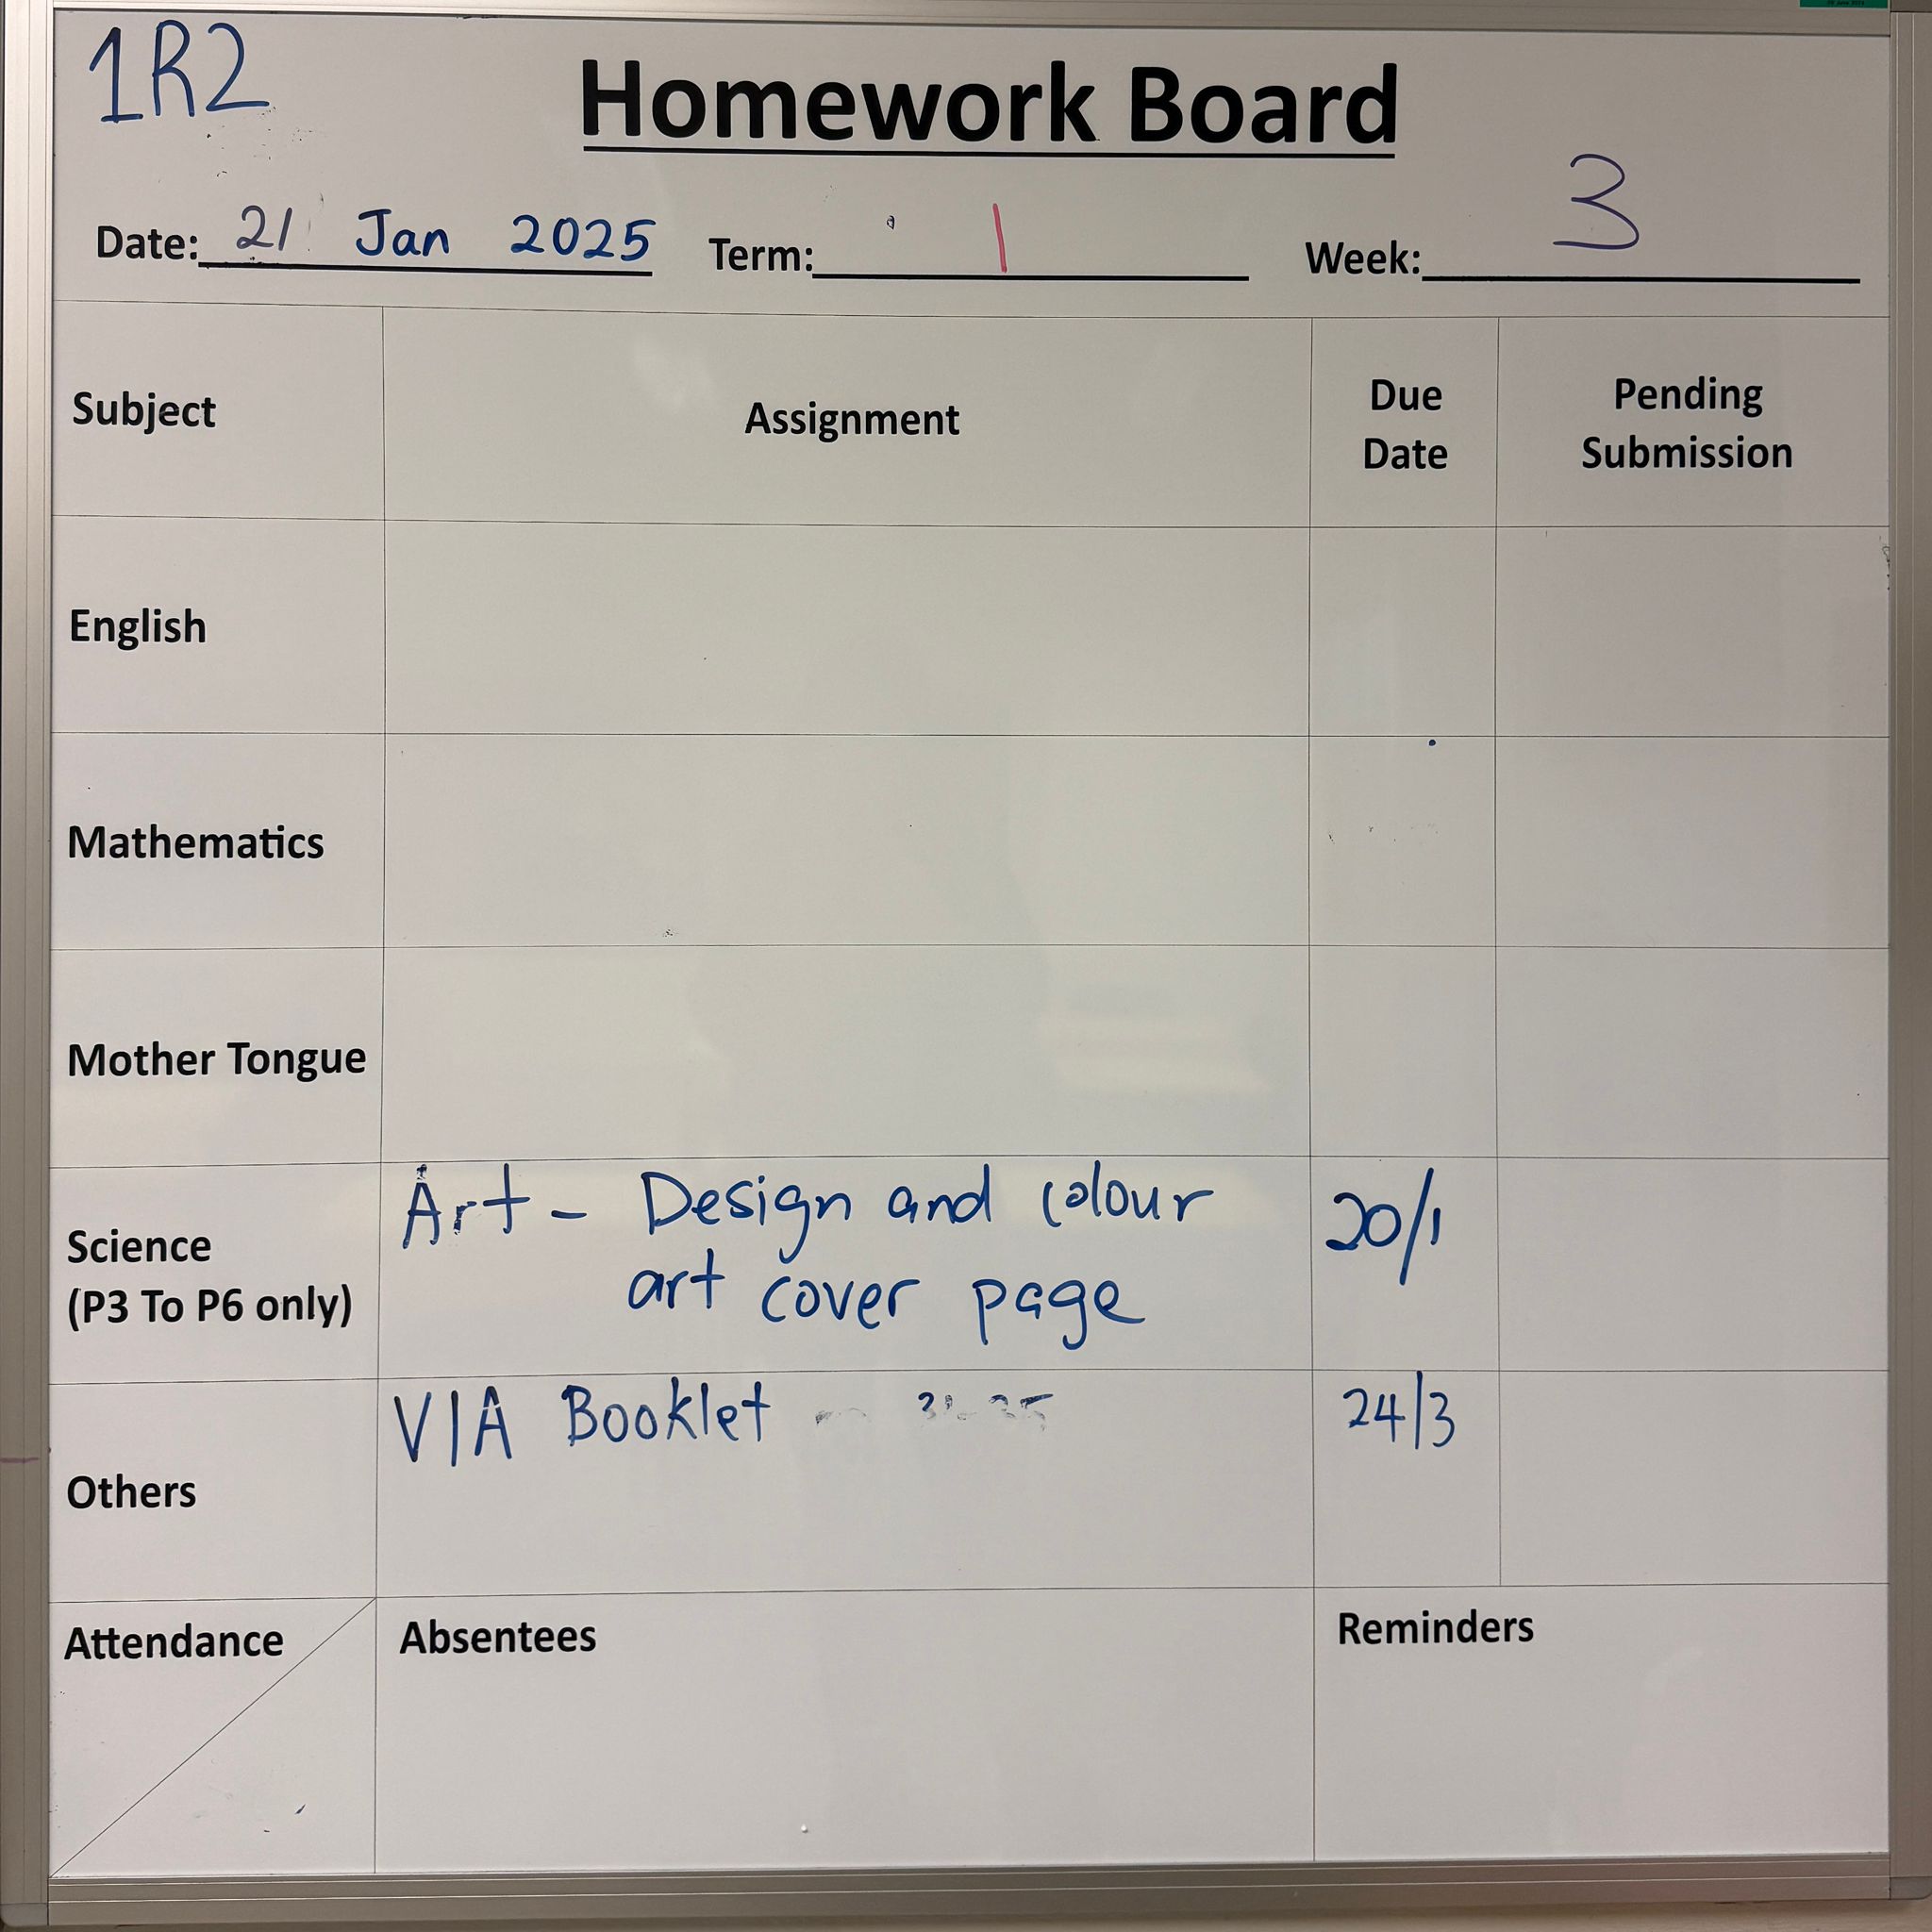 1R2
Homework Board
Date: 21 Jan 2025 Term: 1 Week: 3
Subject Assignment Due Date Pending Submission
English
Mathematics
Mother Tongue
Science (P3 To P6 only) Art - Design and colour art cover page 20/1
Others VIA Booklet 24/3
Attendance Absentees Reminders